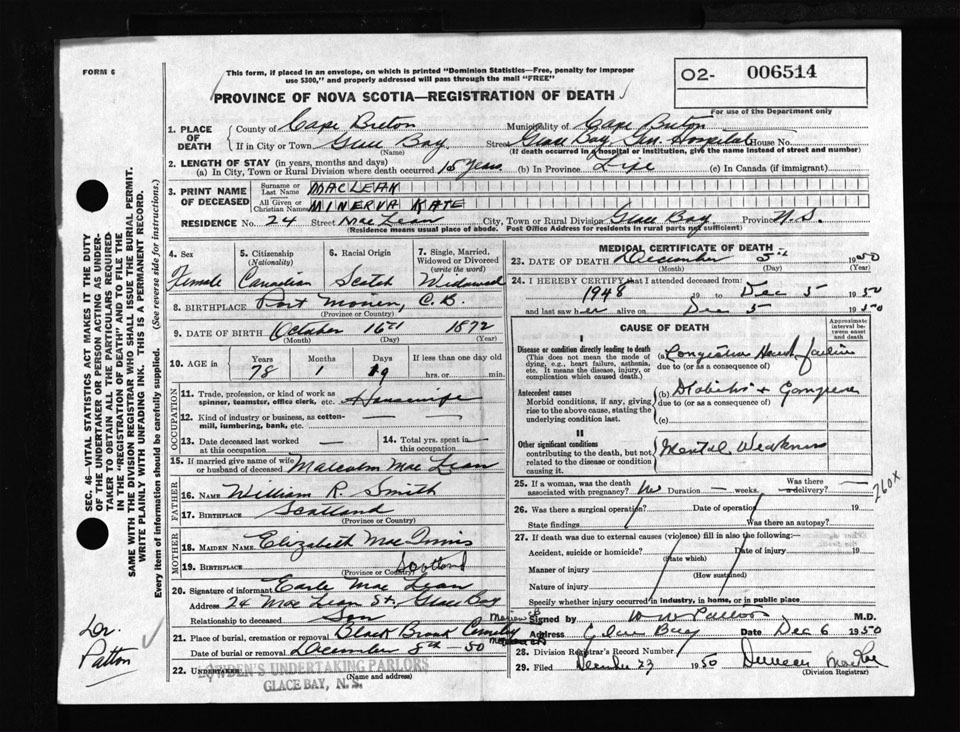 FORM 6
This form, if placed in an envelope, on which is printed "Dominion Statistics—Free, penalty for improper
use $300," and properly addressed will pass through the mail "FREE"
O2- 006514
For use of the Department only
PROVINCE OF NOVA SCOTIA—REGISTRATION OF DEATH
1. PLACE OF DEATH
County of Cape Breton Municipality of Cape Breton
If in City or Town Glace Bay (Name) Street Glace Bay Gen. Hospital House No.
(If death occurred in a hospital or institution, give the name instead of street and number)
2. LENGTH OF STAY (in years, months and days)
(a) In City, Town or Rural Division where death occurred 15 years (b) In Province Life (c) In Canada (if immigrant)
3. PRINT NAME OF DECEASED
Surname or Last Name MACLEAN
All Given or Christian Names MINERVA KATE
RESIDENCE No. 24 Street MacLean City, Town or Rural Division Glace Bay Province N.S.
(Residence means usual place of abode. Post Office Address for residents in rural parts not sufficient)
4. Sex Female
5. Citizenship (Nationality) Canadian
6. Racial Origin Scotch
7. Single, Married, Widowed or Divorced (write the word) Widowed
8. BIRTHPLACE Port Morien, C.B.
(Province or Country)
9. DATE OF BIRTH October 16th 1872
(Month) (Day) (Year)
10. AGE in Years 78 Months 1 Days 19 If less than one day old hrs. or min.
OCCUPATION
11. Trade, profession, or kind of work as spinner, teamster, office clerk, etc. Housewife
12. Kind of industry or business, as cotton-mill, lumbering, bank, etc. —
13. Date deceased last worked at this occupation —
14. Total yrs. spent in this occupation —
15. If married give name of wife or husband of deceased Malcolm MacLean
FATHER
16. NAME William R. Smith
17. BIRTHPLACE Scotland
(Province or Country)
MOTHER
18. MAIDEN NAME Elizabeth MacInnis
19. BIRTHPLACE Scotland
(Province or Country)
20. Signature of informant Earle MacLean
Address 24 MacLean St, Glace Bay
Relationship to deceased Son
21. Place of burial, cremation or removal Black Brook Cemetery
Date of burial or removal December 8th - 50
22. UNDERTAKER
LOWDEN'S UNDERTAKING PARLORS
GLACE BAY, N.S.
MEDICAL CERTIFICATE OF DEATH
23. DATE OF DEATH December 5th 1950
(Month) (Day) (Year)
24. I HEREBY CERTIFY that I attended deceased from:
1948 19 to Dec 5 1950
and last saw her alive on Dec 5 1950
CAUSE OF DEATH
Approximate interval between onset and death
I
Disease or condition directly leading to death
(This does not mean the mode of dying, e.g., heart failure, asthenia, etc. It means the disease, injury, or complication which caused death.)
(a) Congestive Heart failure
due to (or as a consequence of)
Antecedent causes
Morbid conditions, if any, giving rise to the above cause, stating the underlying condition last.
(b) Diabetes + Gangrene
due to (or as a consequence of)
(c)
II
Other significant conditions
contributing to the death, but not related to the disease or condition causing it.
Mental Weakness
25. If a woman, was the death associated with pregnancy? No Duration — weeks. Was there a delivery? —
260X
26. Was there a surgical operation? Date of operation 19
State findings Was there an autopsy?
27. If death was due to external causes (violence) fill in also the following:—
Accident, suicide or homicide? (State which) Date of injury 19
Manner of injury (How sustained)
Nature of injury
Specify whether injury occurred in industry, in home, or in public place
Signed by M.D.
Address Glace Bay Date Dec 6 1950
28. Division Registrar's Record Number
29. Filed December 23 1950 Duncan
(Division Registrar)
SEC. 46—VITAL STATISTICS ACT MAKES IT THE DUTY
OF THE UNDERTAKER OR PERSON ACTING AS UNDER-
TAKER TO OBTAIN ALL THE PARTICULARS REQUIRED
IN THE "REGISTRATION OF DEATH" AND TO FILE THE
SAME WITH THE DIVISION REGISTRAR WHO SHALL ISSUE THE BURIAL PERMIT.
WRITE PLAINLY WITH UNFADING INK. THIS IS A PERMANENT RECORD.
Every item of information should be carefully supplied. (See reverse side for instructions.)
Dr.
Patton